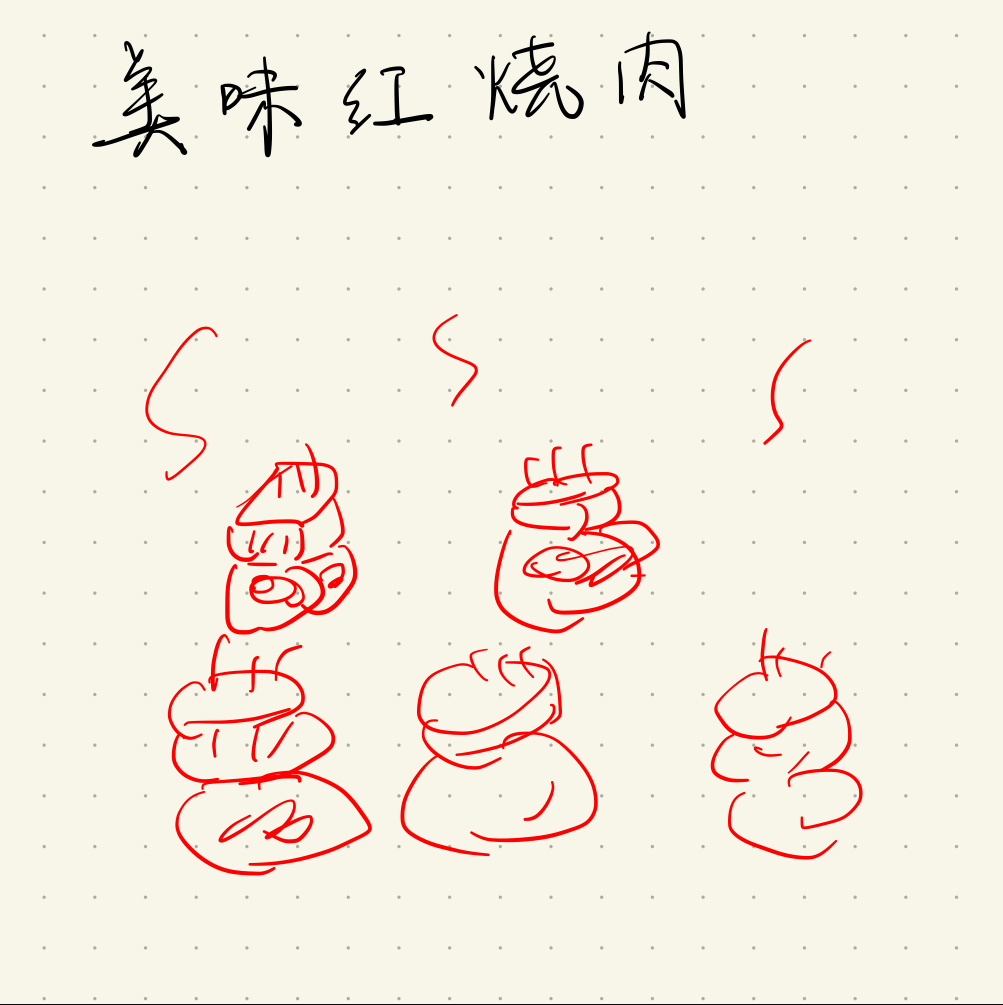 美味红烧肉